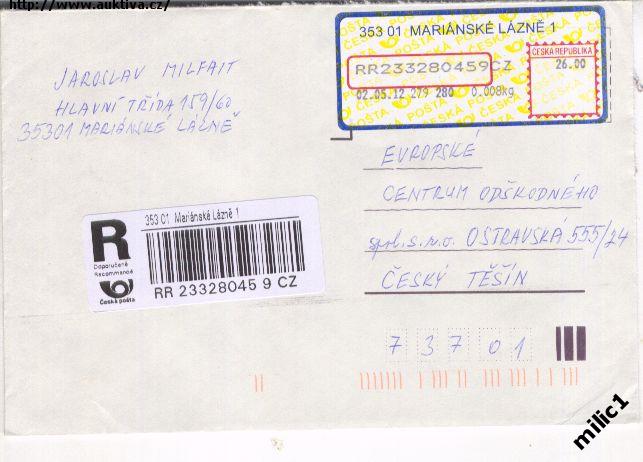 http://www.auktiva.cz/
JAROSLAV MILFAIT
HLAVNÍ TŘÍDA 159/60
35301 MARIÁNSKÉ LÁZNĚ
353 01 MARIÁNSKÉ LÁZNĚ 1
RR233280459CZ
ČESKÁ REPUBLIKA
26.00
02.05.12 279 280 0.008kg
ČESKÁ POŠTA
353 01 Mariánské Lázně 1
R
Doporučeně
Recommandé
Česká pošta
RR 23328045 9 CZ
EVROPSKÉ
CENTRUM ODŠKODNÉHO
spol. s.r.o. OSTRAVSKÁ 555/24
ČESKÝ TĚŠÍN
73701
milic1